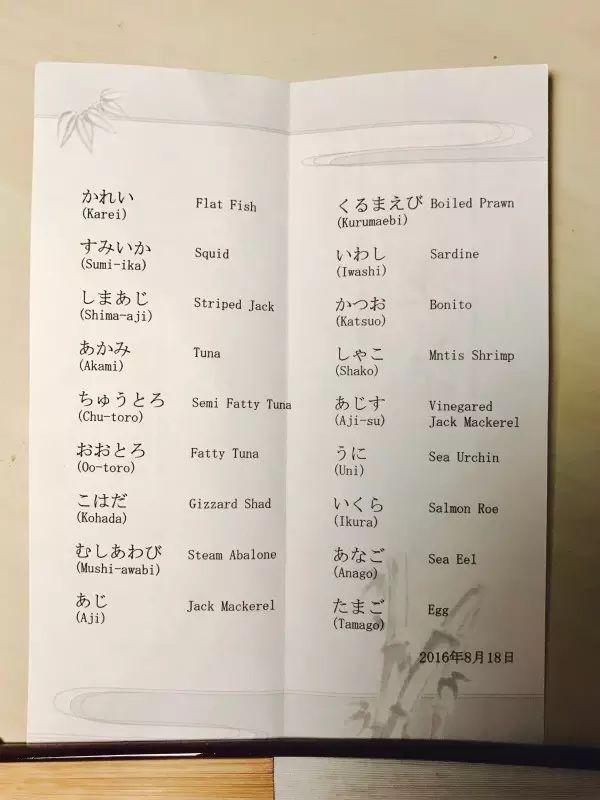 かれい Flat Fish
(Karei)
すみいか Squid
(Sumi-ika)
しまあじ Striped Jack
(Shima-aji)
あかみ Tuna
(Akami)
ちゅうとろ Semi Fatty Tuna
(Chu-toro)
おおとろ Fatty Tuna
(Oo-toro)
こはだ Gizzard Shad
(Kohada)
むしあわび Steam Abalone
(Mushi-awabi)
あじ Jack Mackerel
(Aji)
くるまえび Boiled Prawn
(Kurumaebi)
いわし Sardine
(Iwashi)
かつお Bonito
(Katsuo)
しゃこ Mntis Shrimp
(Shako)
あじす Vinegared
(Aji-su) Jack Mackerel
うに Sea Urchin
(Uni)
いくら Salmon Roe
(Ikura)
あなご Sea Eel
(Anago)
たまご Egg
(Tamago)
2016年8月18日